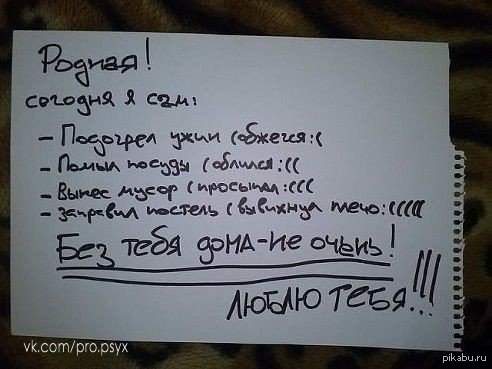 Родная!
сегодня я сам:
- Подогрел ужин (обжегся:(
- Помыл посуду (облился:((
- Вынес мусор (просыпал:(((
- заправил постель (вывихнул плечо:(((((
Без тебя дома-не очень!
ЛЮБЛЮ ТЕБЯ...!!!
vk.com/pro.psyx
pikabu.ru